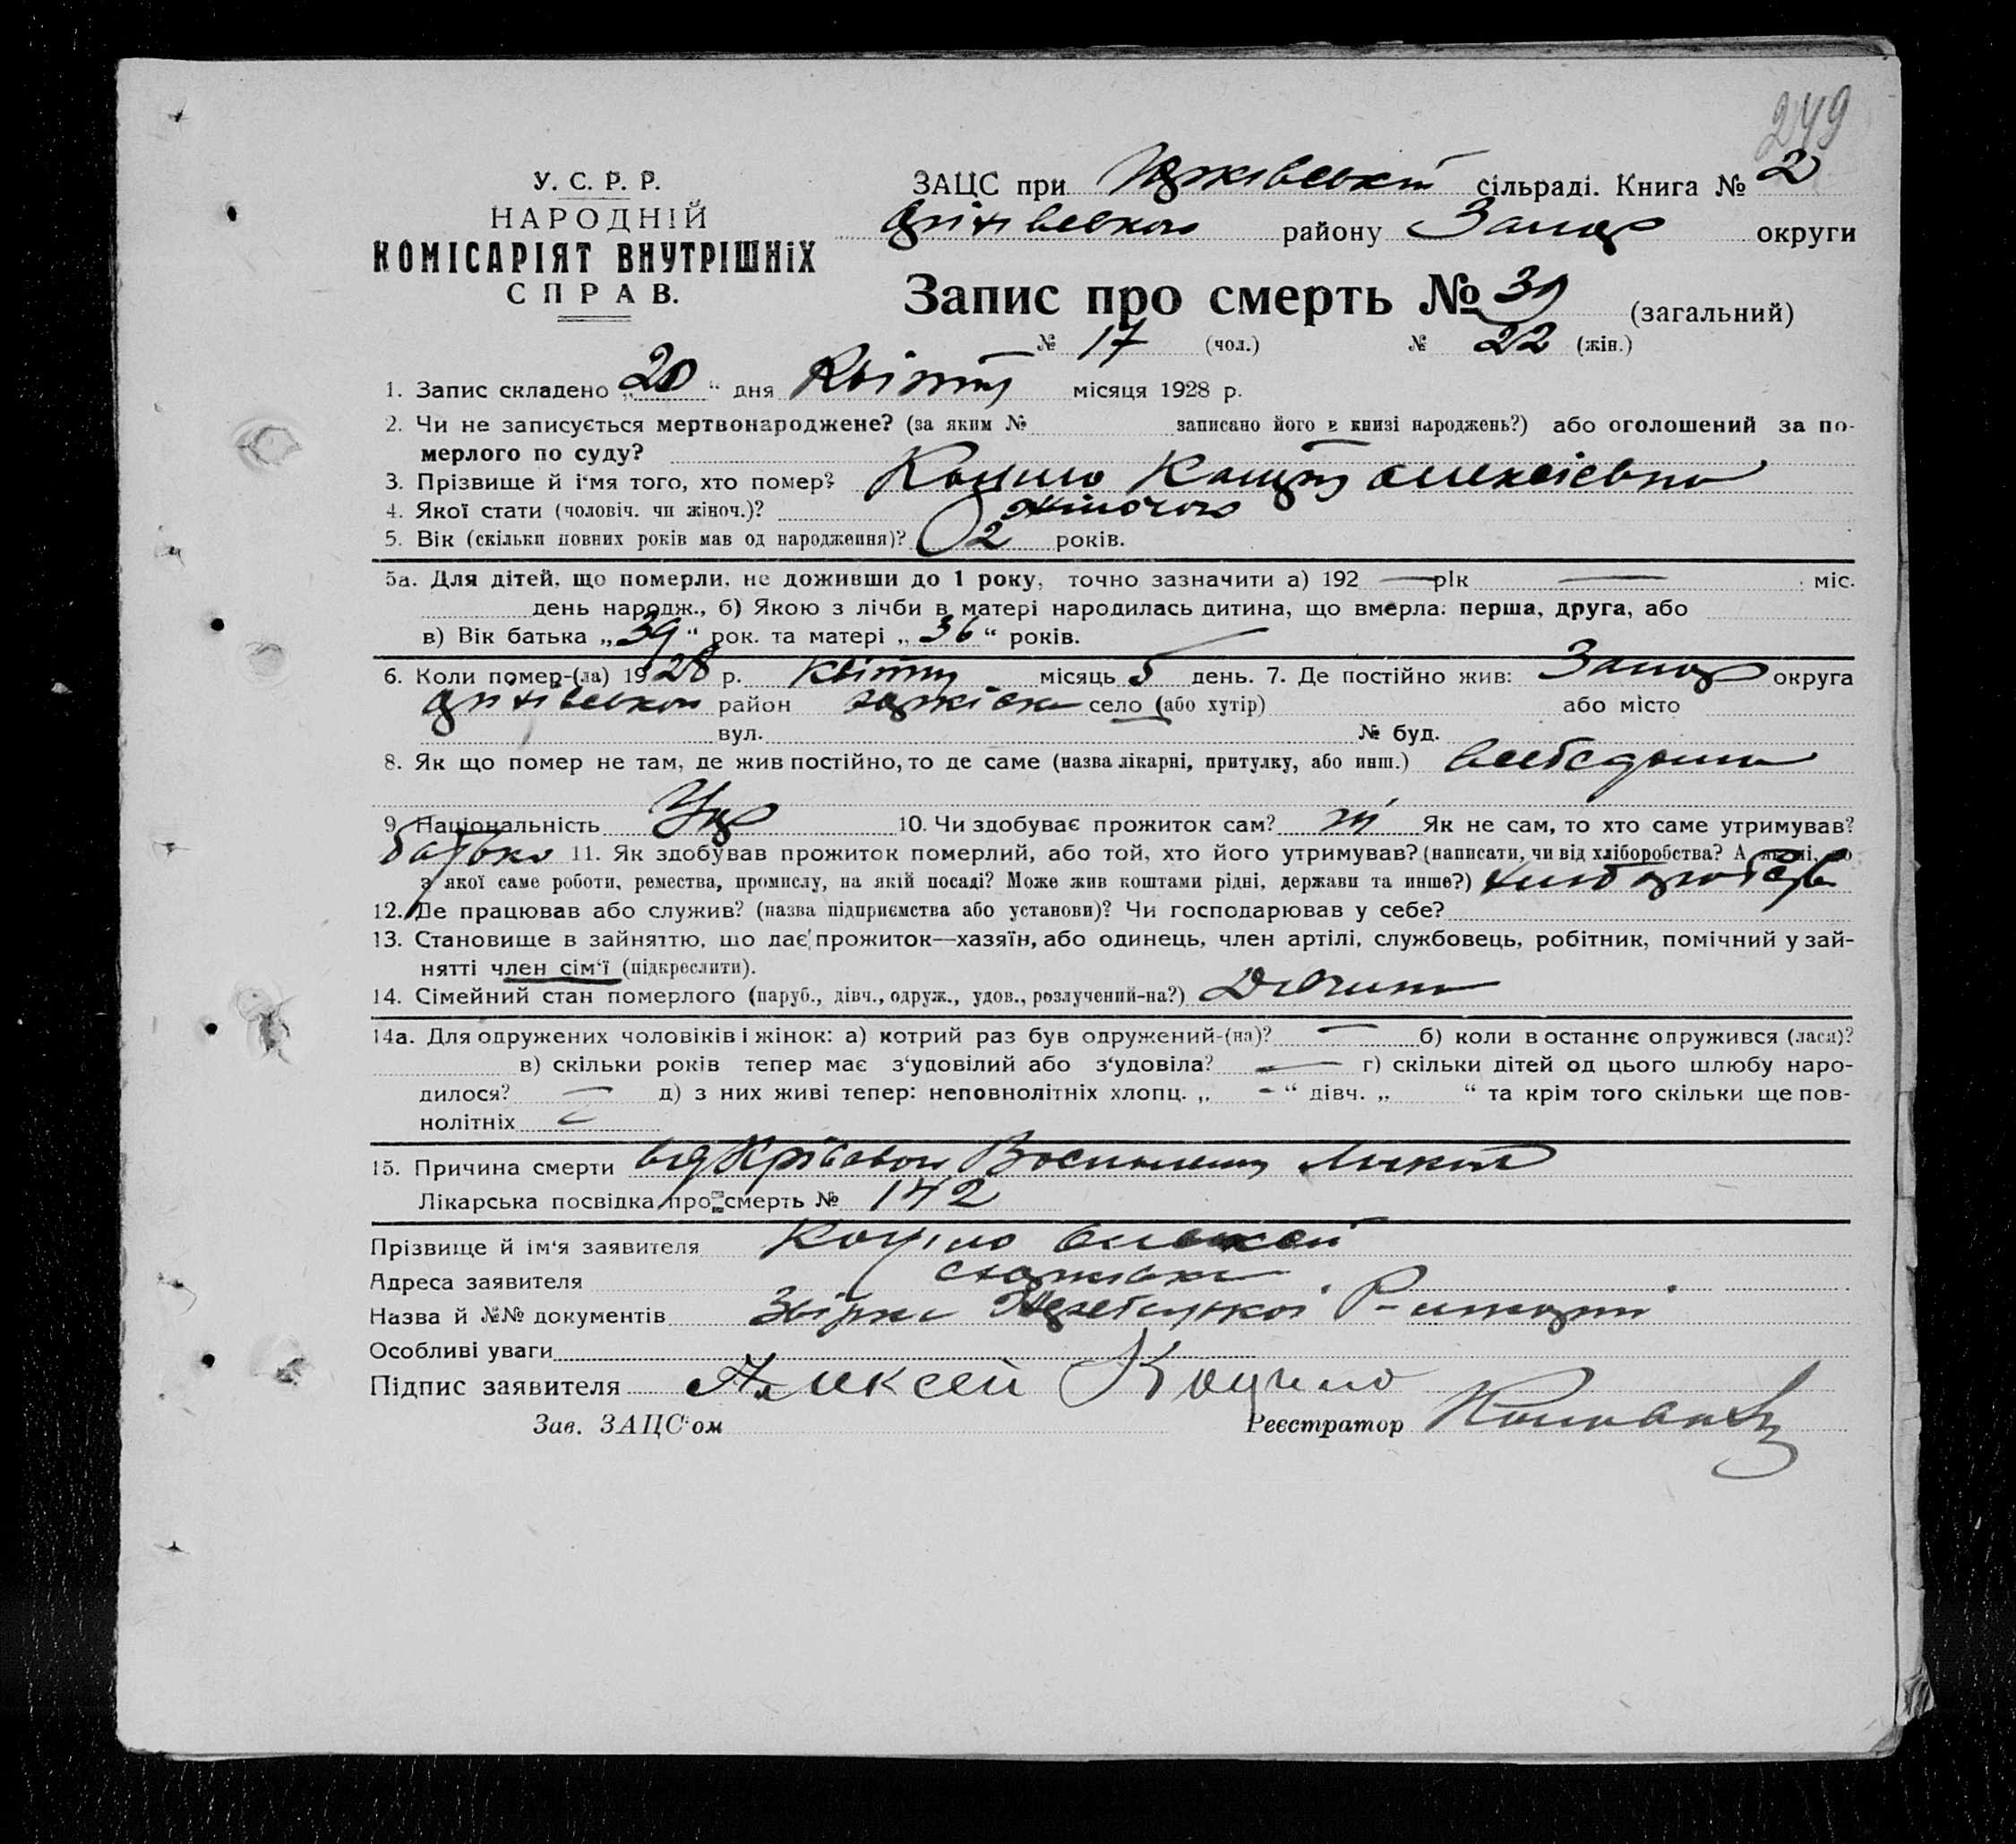 249
У. С. Р. Р.
НАРОДНІЙ
КОМІСАРІЯТ ВНУТРІШНІХ
СПРАВ.
ЗАЦС при сільраді. Книга № 2
району Запор округи
Запис про смерть № 39 (загальний)
№ 17 (чол.) № 22 (жін.)
1. Запис складено „20“ дня Квітня місяця 1928 р.
2. Чи не записується мертвонароджене? (за яким № записано його в книзі народжень?) або оголошений за по-
мерлого по суду?
3. Прізвище й і'мя того, хто помер? Алексієвна
4. Якої стати (чоловіч. чи жіноч.)? жіночого
5. Вік (скільки повних років мав од народження)? 2 років.
5а. Для дітей, що померли, не доживши до 1 року, точно зазначити а) 192 — рік — міс.
день народж., б) Якою з лічби в матері народилась дитина, що вмерла: перша, друга, або
в) Вік батька „39“ рок. та матері „36“ років.
6. Коли помер-(ла) 1928 р. квітня місяць 5 день. 7. Де постійно жив: Запор округа
район село (або хутір) або місто
вул. № буд.
8. Як що помер не там, де жив постійно, то де саме (назва лікарні, притулку, або инш.) в себе дома
9. Національність Укр 10. Чи здобуває прожиток сам? ні Як не сам, то хто саме утримував?
батько 11. Як здобував прожиток померлий, або той, хто його утримував? (написати, чи від хліборобства? А як ні, то
з якої саме роботи, ремества, промислу, на якій посаді? Може жив коштами рідні, держави та инше?) хліборобство
12. Де працював або служив? (назва підприємства або установи)? Чи господарював у себе?
13. Становище в зайняттю, що дає прожиток—хазяїн, або одинець, член артілі, службовець, робітник, помічний у зай-
нятті член сім'ї (підкреслити).
14. Сімейний стан померлого (паруб., дівч., одруж., удов., розлучений-на?) Дівчина
14а. Для одружених чоловіків і жінок: а) котрий раз був одружений-(на)? — б) коли в останнє одружився (лася)?
в) скільки років тепер має з'удовілий або з'удовіла? — г) скільки дітей од цього шлюбу наро-
дилося? — д) з них живі тепер: неповнолітніх хлопц. „ - “ дівч. „ “ та крім того скільки ще пов-
нолітніх —
15. Причина смерти від
Лікарська посвідка про смерть № 142
Прізвище й ім'я заявителя Коцило Олексій
Адреса заявителя
Назва й №№ документів
Особливі уваги
Підпис заявителя Алексей Коцило
Зав. ЗАЦС'ом Реєстратор